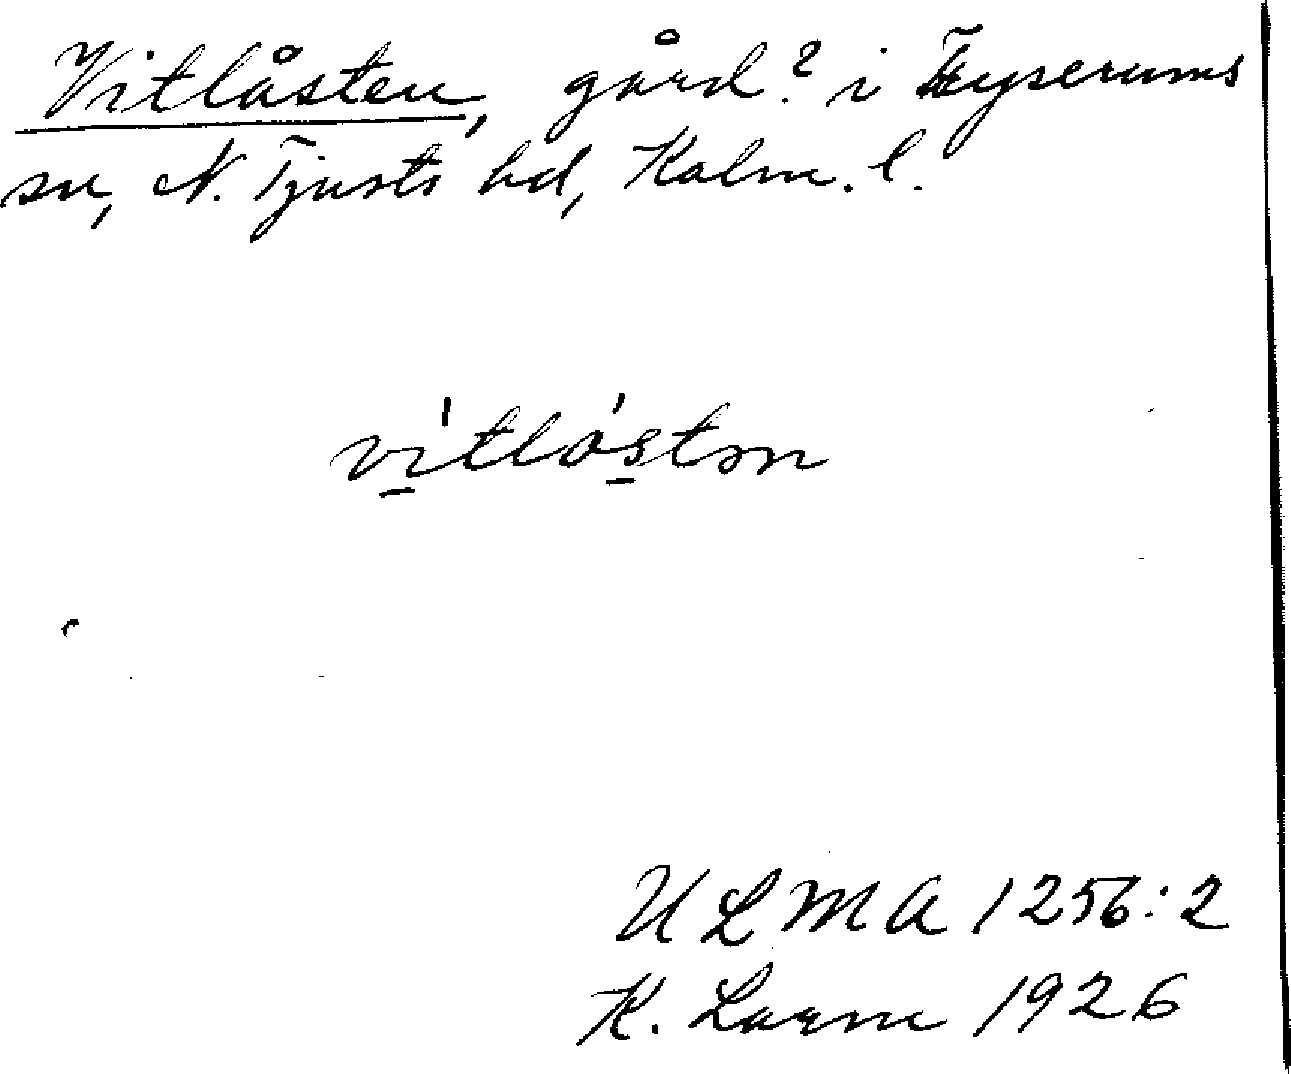 Vitlåsten, gård? i Tryserums
sn, N. Tjusts hd, Kalm. l.
vi̠'tlås̠'tən
ULMA 1256:2
K. Larm 1926